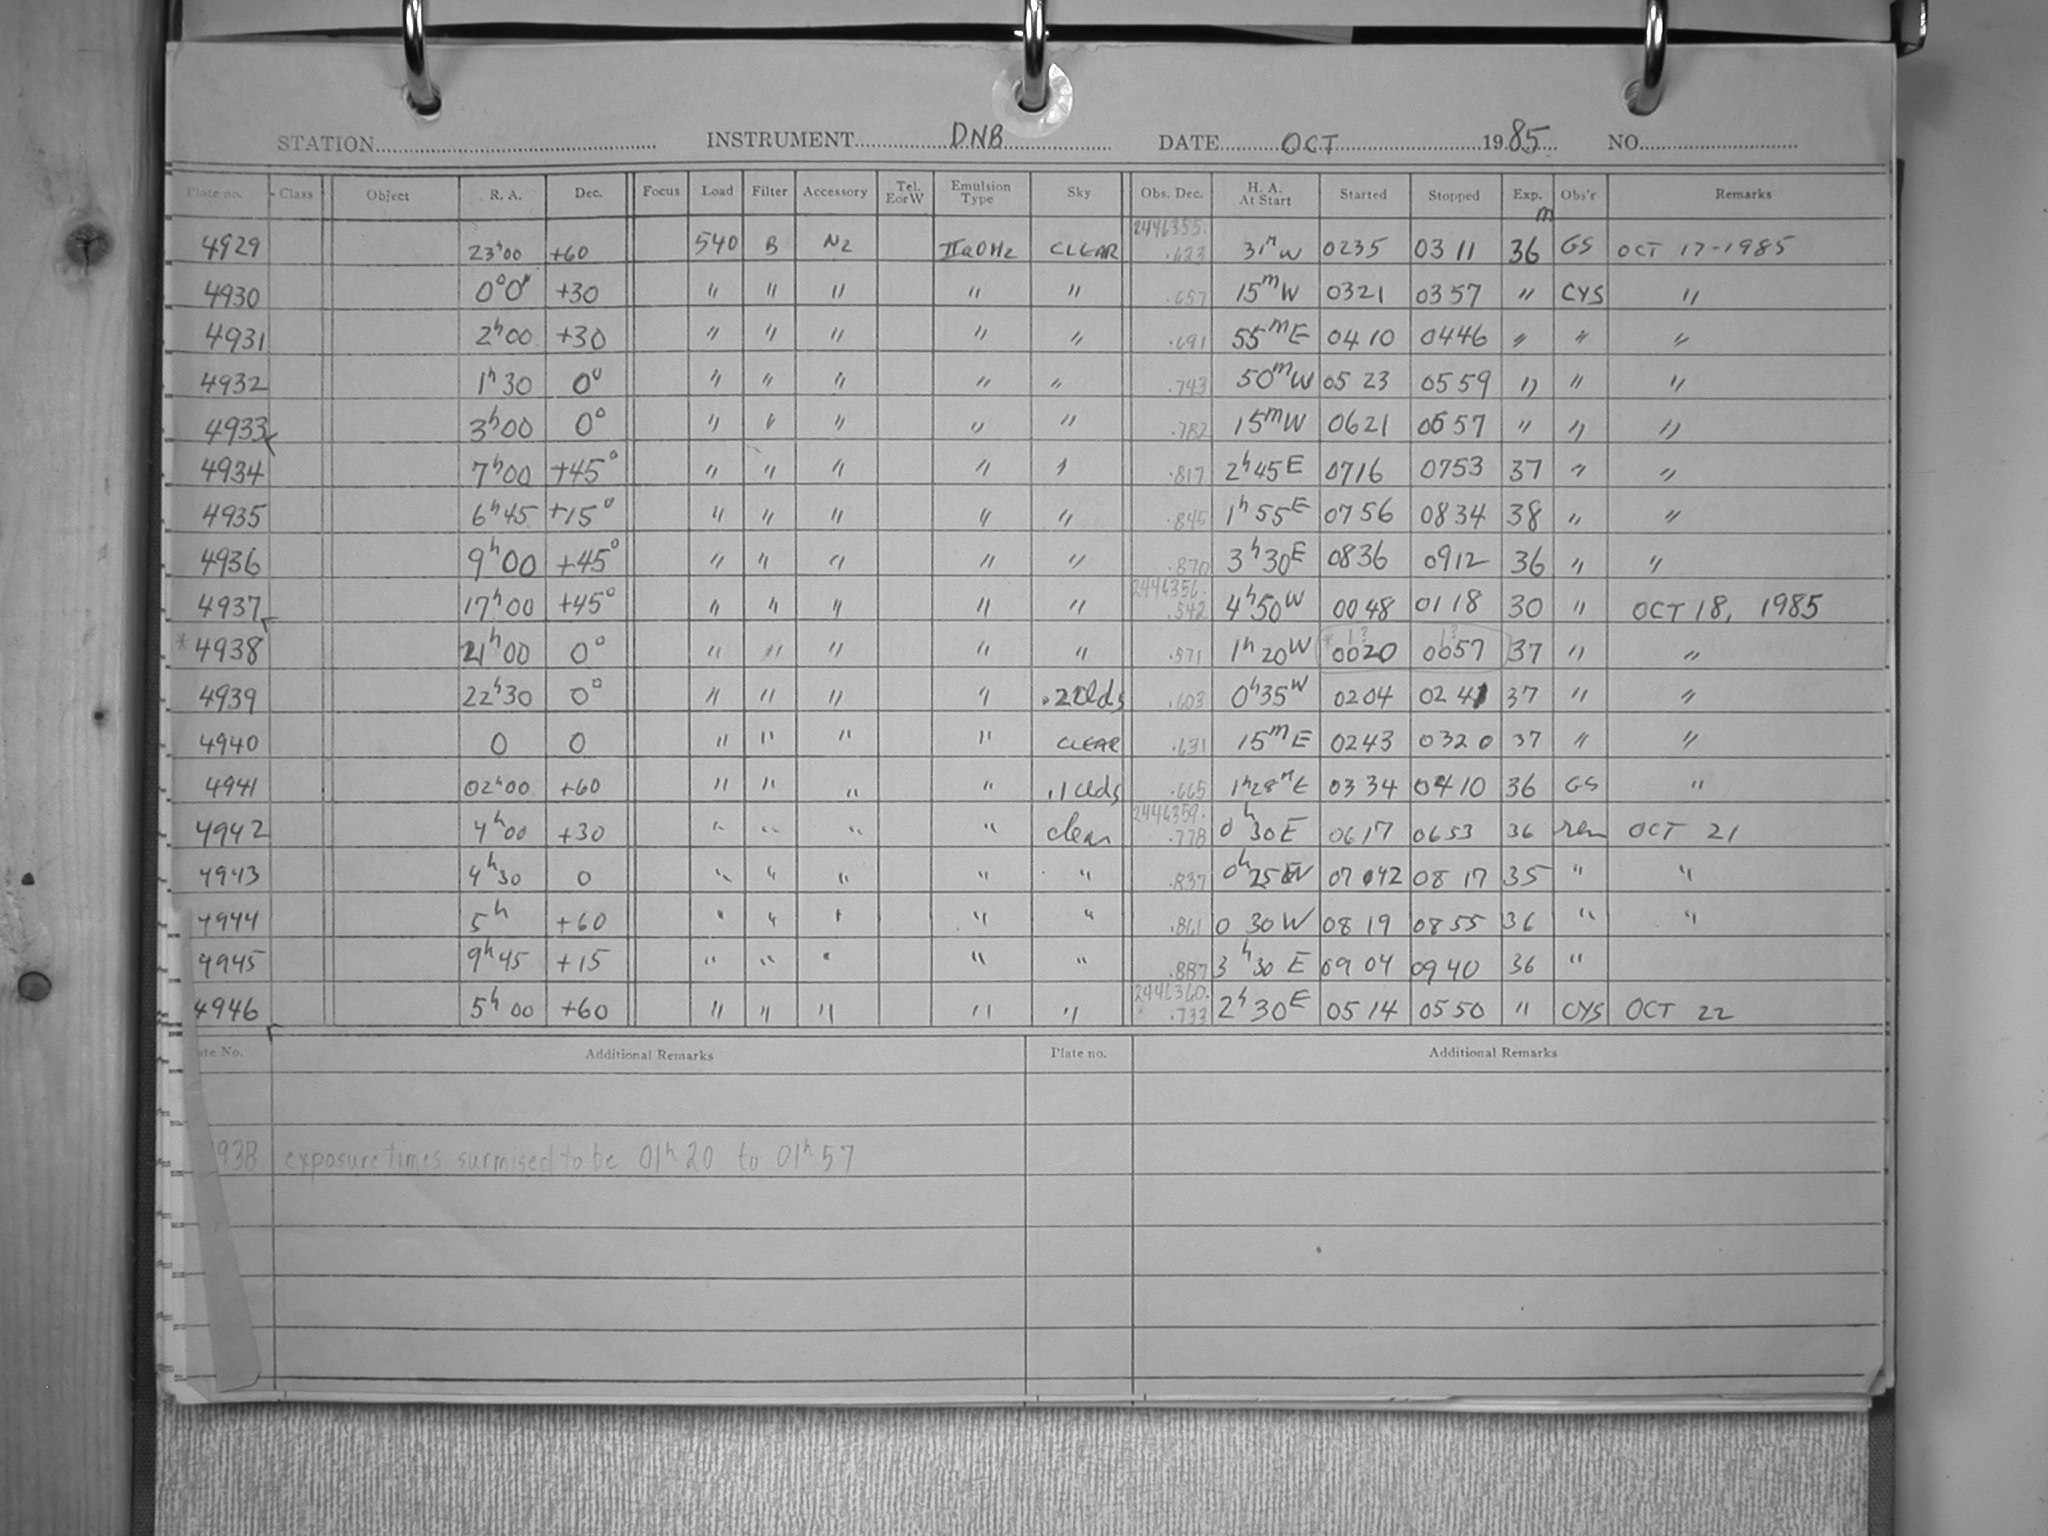 STATION INSTRUMENT DNB DATE OCT 1985 NO.
Plate no. Class Object R. A. Dec. Focus Load Filter Accessory Tel. EorW Emulsion Type Sky Obs. Dec. H. A. At Start Started Stopped Exp. m Obs'r Remarks
2446355.
4929 23h00 +60 540 B N2 IIaOHz CLEAR .623 31m W 0235 0311 36 GS OCT 17-1985
4930 0°0' +30 " " " " " .657 15m W 0321 0357 " CYS "
4931 2h00 +30 " " " " " .691 55m E 0410 0446 " " "
4932 1h30 0° " " " " " .743 50m W 0523 0559 " " "
4933 3h00 0° " " " " " .782 15m W 0621 0657 " " "
4934 7h00 +45° " " " " " .817 2h45E 0716 0753 37 " "
4935 6h45 +15° " " " " " .845 1h55E 0756 0834 38 " "
4936 9h00 +45° " " " " " .870 3h30E 0836 0912 36 " "
2446356.
4937 17h00 +45° " " " " " .542 4h50W 0048 0118 30 " OCT 18, 1985
1? 1?
*4938 21h00 0° " " " " " .571 1h20W *0020 0057 37 " "
4939 22h30 0° " " " " .2Clds .603 0h35W 0204 0241 37 " "
4940 0 0 " " " " CLEAR .631 15m E 0243 0320 37 " "
4941 02h00 +60 " " " " .1Clds .665 1h28m E 0334 0410 36 GS "
2446359.
4942 4h00 +30 " " " " clear .778 0h30E 0617 0653 36 OCT 21
4943 4h30 0 " " " " " .837 0h25W 0742 0817 35 " "
4944 5h +60 " " " " " .861 0 30W 0819 0855 36 " "
4945 9h45 +15 " " " " " .887 3h30 E 0904 0940 36 "
2446360.
4946 5h00 +60 " " " " " .733 2h30E 0514 0550 " CYS OCT 22
ate No. Additional Remarks Plate no. Additional Remarks
938 exposure times surmised to be 01h20 to 01h57